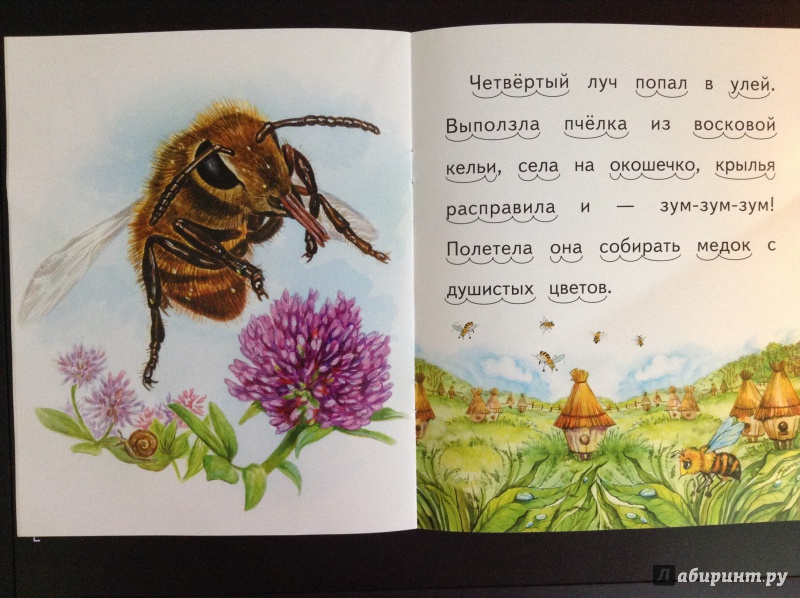 Четвёртый луч попал в улей.
Выползла пчёлка из восковой
кельи, села на окошечко, крылья
расправила и — зум-зум-зум!
Полетела она собирать медок с
душистых цветов.
Лабиринт.ру